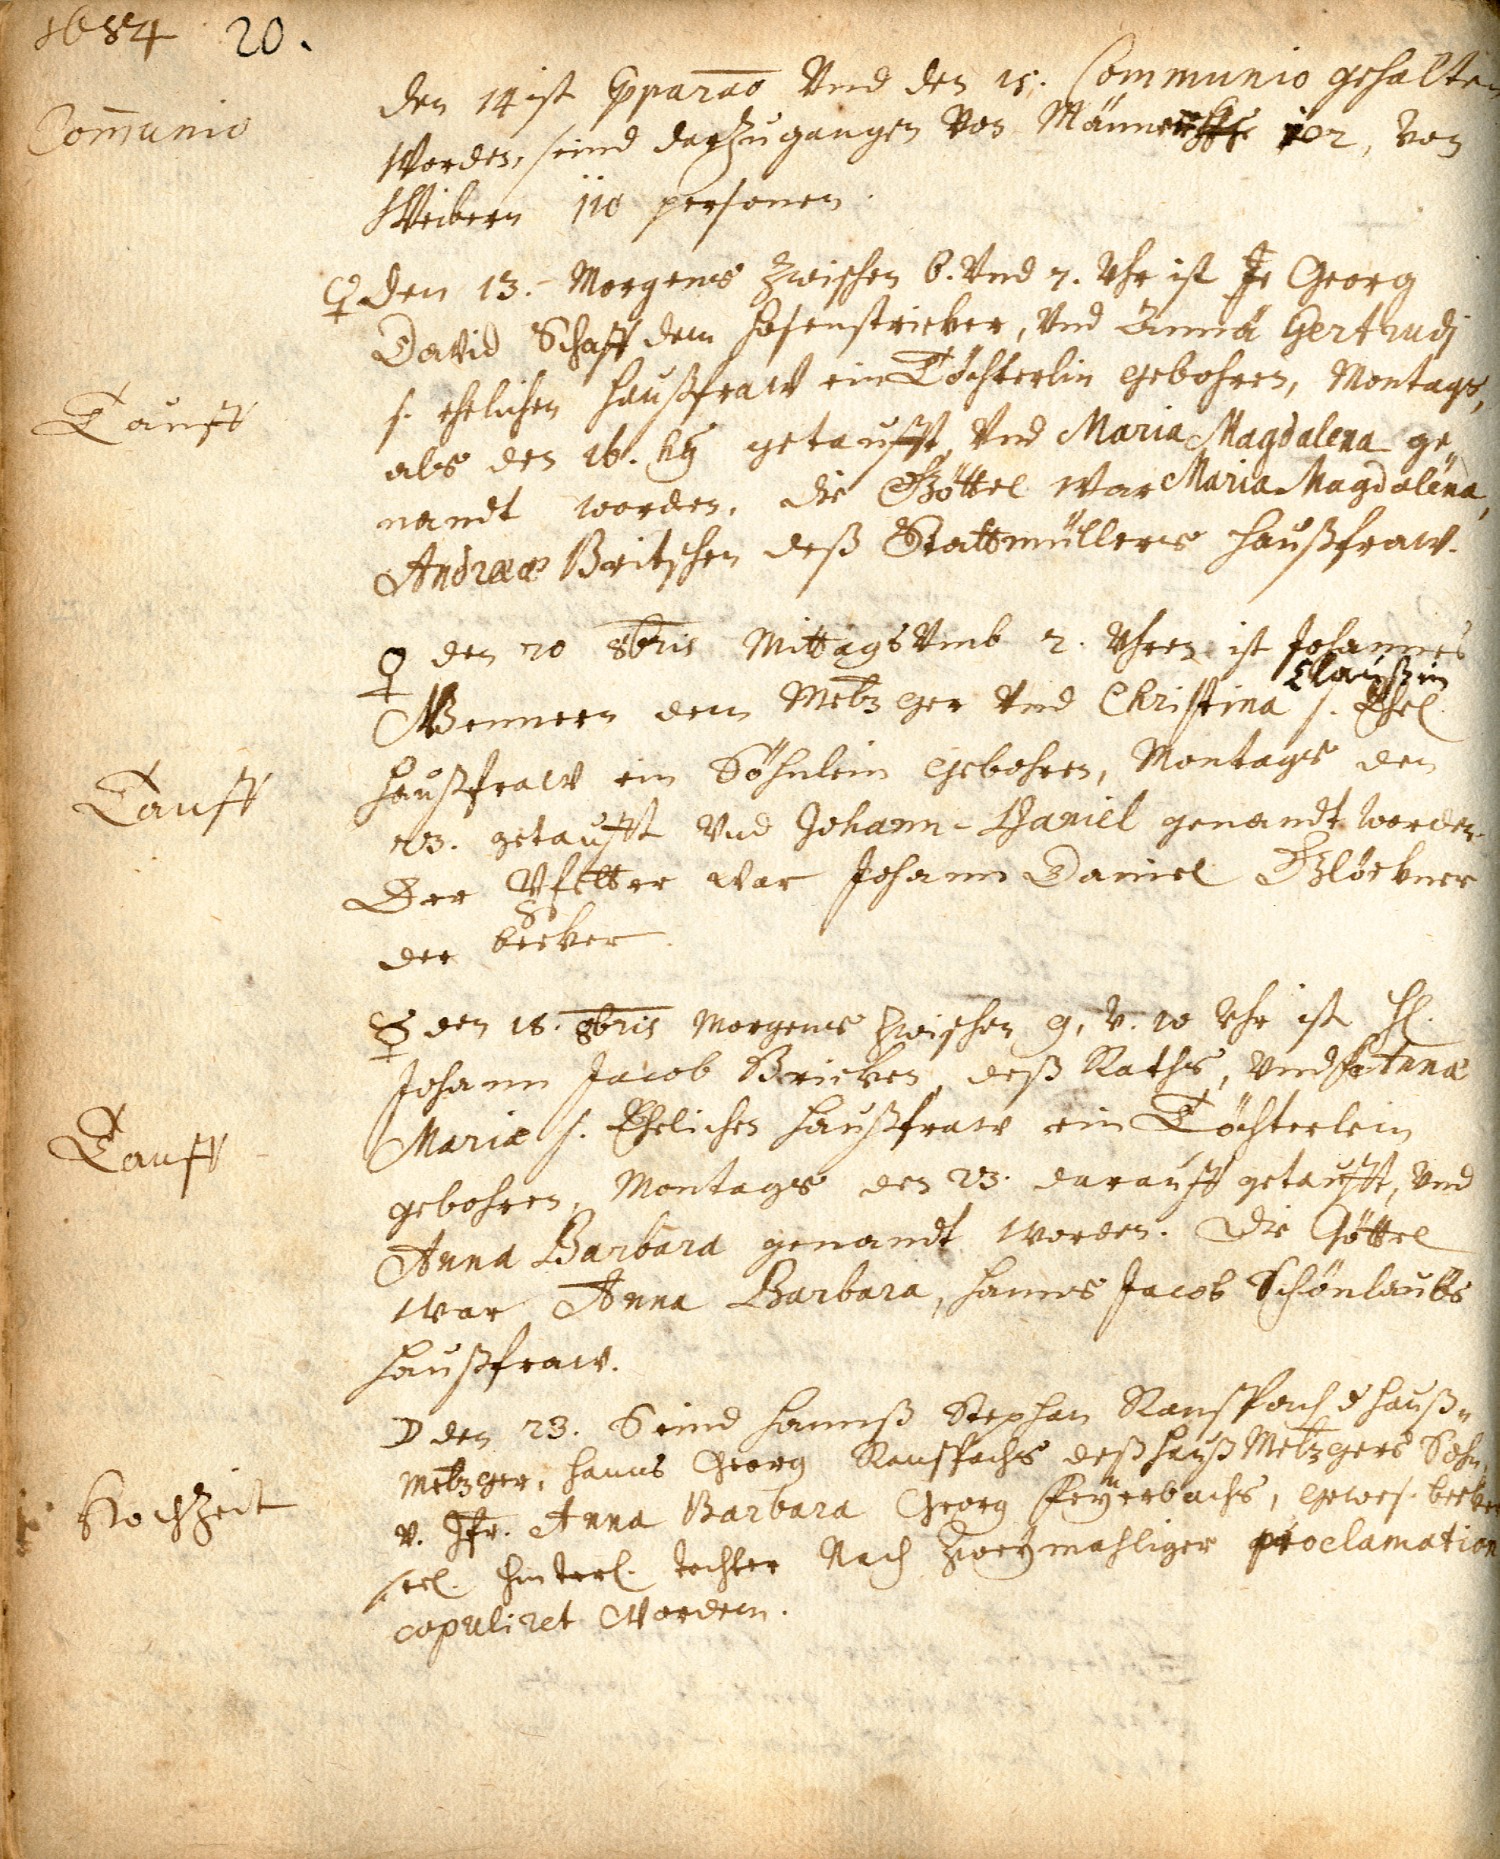 1684 20.
Com̄unio
den 14 ist Ppara͞o Vnd den 15. Communio gehalten
Worden, seind darzu gangen Von Männern 102, Von
Weibern 110 personen.
♀ den 13. Morgens Zwischen 6. Vnd 7. Vhr ist Georg
David Schaff dem Hosenstricker, Vnd Annä Gertrudj
Tauff
s. ehelichen Haußfraw ein Töchterlin gebohren, Montags,
als den 16. getaufft, Vnd Maria Magdalena ge„
nandt worden, die Göttel War Maria Magdalena,
Andreæ Britschen deß Stattmüllers Haußfraw.
♀ den 20 8bris Mittags Vmb 2. Vhren ist Johannes
Claußin
Wennern dem Metzger Vnd Christina s. Ehel.
Tauff
Haußfraw ein Söhnlein gebohren, Montags den
23. getaufft Vnd Johann-Daniel genandt Worden.
Der Pfetter war Johann Daniel Glöckner
der becker.
☿ den 18. 8bris Morgens Zwischen 9. V. 10 Vhr ist H.
Johann Jacob Bricken, deß Raths, Vnd Annæ
Tauff
Mariæ s. Ehelichen Haußfraw ein Töchterlein
gebohren, Montags den 23. darauff getaufft, Vnd
Anna Barbara genandt Worden. Die Göttel
War Anna Barbara, Hanns Jacob Schönlaubs
Haußfraw.
☽ den 23. Seind Hannß Stephan Ranspach d Hauß„
Hochzeit
Metzger, Hanns Georg Ranspachs deß Hauß Metzgers Sohn,
V. Jfr. Anna Barbara Georg Feyerbachs, gewes. becker
seel. hinterl. tochter Nach Zweymahliger proclamation
copuliret Worden.